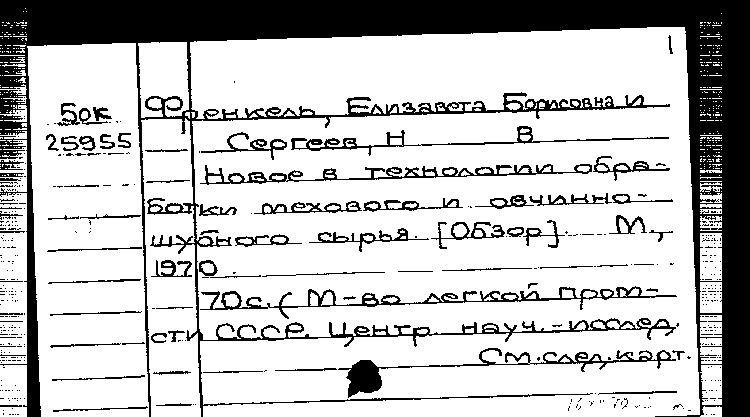 1
Бок Френкель, Елизавета Борисовна и
25955 Сергеев, Н В
Новое в технологии обра-
ботки мехового и овчинно-
шубного сырья. [Обзор]. М.,
1970.
70с. (М-во легкой пром-
сти СССР. Центр. науч.-исслед.
См. след. карт.